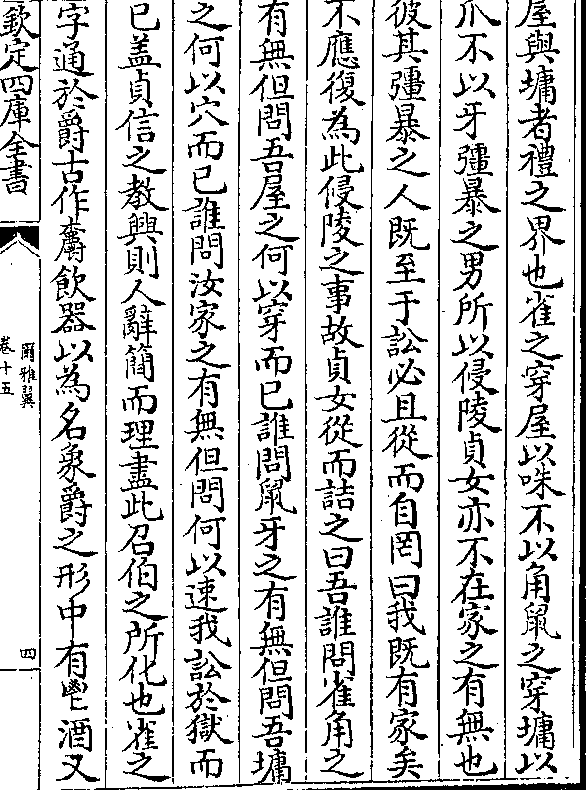 屋與墉者禮之界也雀之穿屋以咮不以角鼠之穿墉以
爪不以牙彊暴之男所以侵陵貞女亦不在家之有無也
彼其彊暴之人既至于訟必且從而自罔曰我既有家矣
不應復為此侵陵之事故貞女從而詰之曰吾誰問雀角之
有無但問吾屋之何以穿而已誰問鼠牙之有無但問吾墉
之何以穴而已誰問汝家之有無但問何以速我訟於獄而
已盖貞信之教興則人辭簡而理盡此召伯之所化也雀之
字通於爵古作𩰥飲器以為名象爵之形中有鬯酒又
欽定四庫全書
爾雅翼
卷十五
四